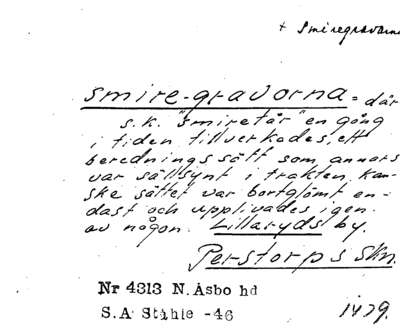 + Smiregravarna
smire-gravorna = där
s.k. "smiretår" en gång
i tiden tillverkades, ett
beredningssätt som annars
var sällsynt i trakten. Kan-
ske sättet var bortglömt en-
dast och upplivades igen
av någon. Lillaryds by.
Perstorps skn.
Nr 4313 N. Åsbo hd
S.A Ståhle -46
1479.